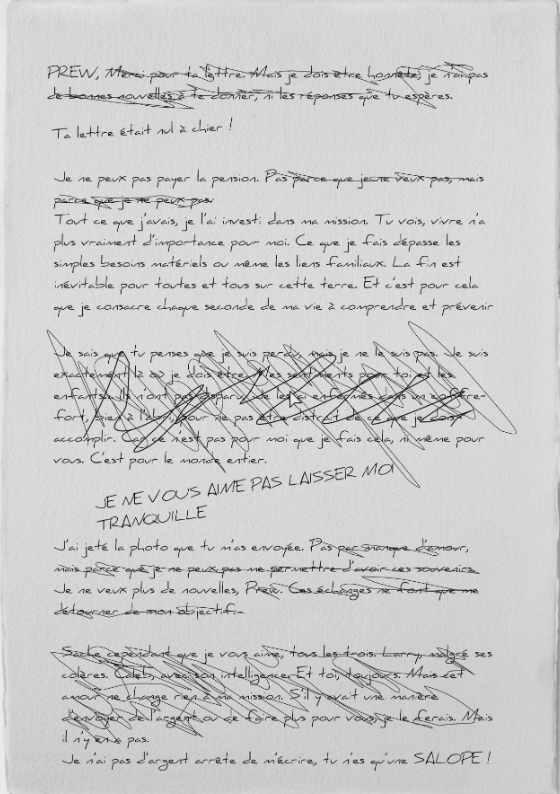 PREW, Merci pour ta lettre. Mais je dois être honnête, je n'ai pas
de bonnes nouvelles à te donner, ni les réponses que tu espères.
Ta lettre était nul à chier !
Je ne peux pas payer la pension. Pas parce que je ne veux pas, mais
parce que je ne peux pas.
Tout ce que j'avais, je l'ai investi dans ma mission. Tu vois, vivre n'a
plus vraiment d'importance pour moi. Ce que je fais dépasse les
simples besoins matériels ou même les liens familiaux. La fin est
inévitable pour toutes et tous sur cette terre. Et c'est pour cela
que je consacre chaque seconde de ma vie à comprendre et prévenir
Je sais que tu penses que je suis perdu, mais je ne le suis pas. Je suis
exactement là où je dois être. les sentiments pour toi et les
enfants. Ils n'ont pas disparu. Je les ai enfermés dans un coffre-
fort, bien à l'abri, pour ne pas être distrait de ce que je dois
accomplir. Car ce n'est pas pour moi que je fais cela, ni même pour
vous. C'est pour le monde entier.
JE NE VOUS AIME PAS LAISSER MOI
TRANQUILLE
J'ai jeté la photo que tu m'as envoyée. Pas par manque d'amour,
mais parce que je ne peux pas me permettre d'avoir ces souvenirs.
Je ne veux plus de nouvelles, Prew. Ces échanges ne font que me
détourner de mon objectif.
Sache cependant que je vous aime, tous les trois. Larry, malgré ses
colères. Caleb, avec son intelligence. Et toi, toujours. Mais cet
amour ne change rien à ma mission. S'il y avait une manière
d'envoyer de l'argent ou de faire plus pour vous, je le ferais. Mais
il n'y en a pas.
Je n'ai pas d'argent arrête de m'écrire, tu n'es qu'une SALOPE !